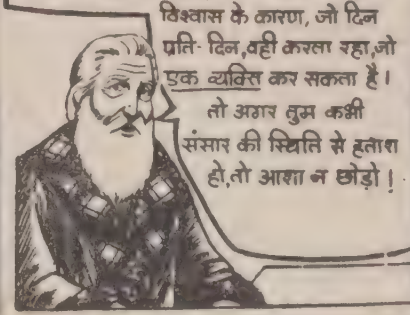 विश्वास के कारण, जो दिन
प्रति- दिन, वही करता रहा, जो
एक व्यक्ति कर सकता है।
तो अगर तुम कभी
संसार की स्थिति से हताश
हो, तो आशा न छोड़ो!